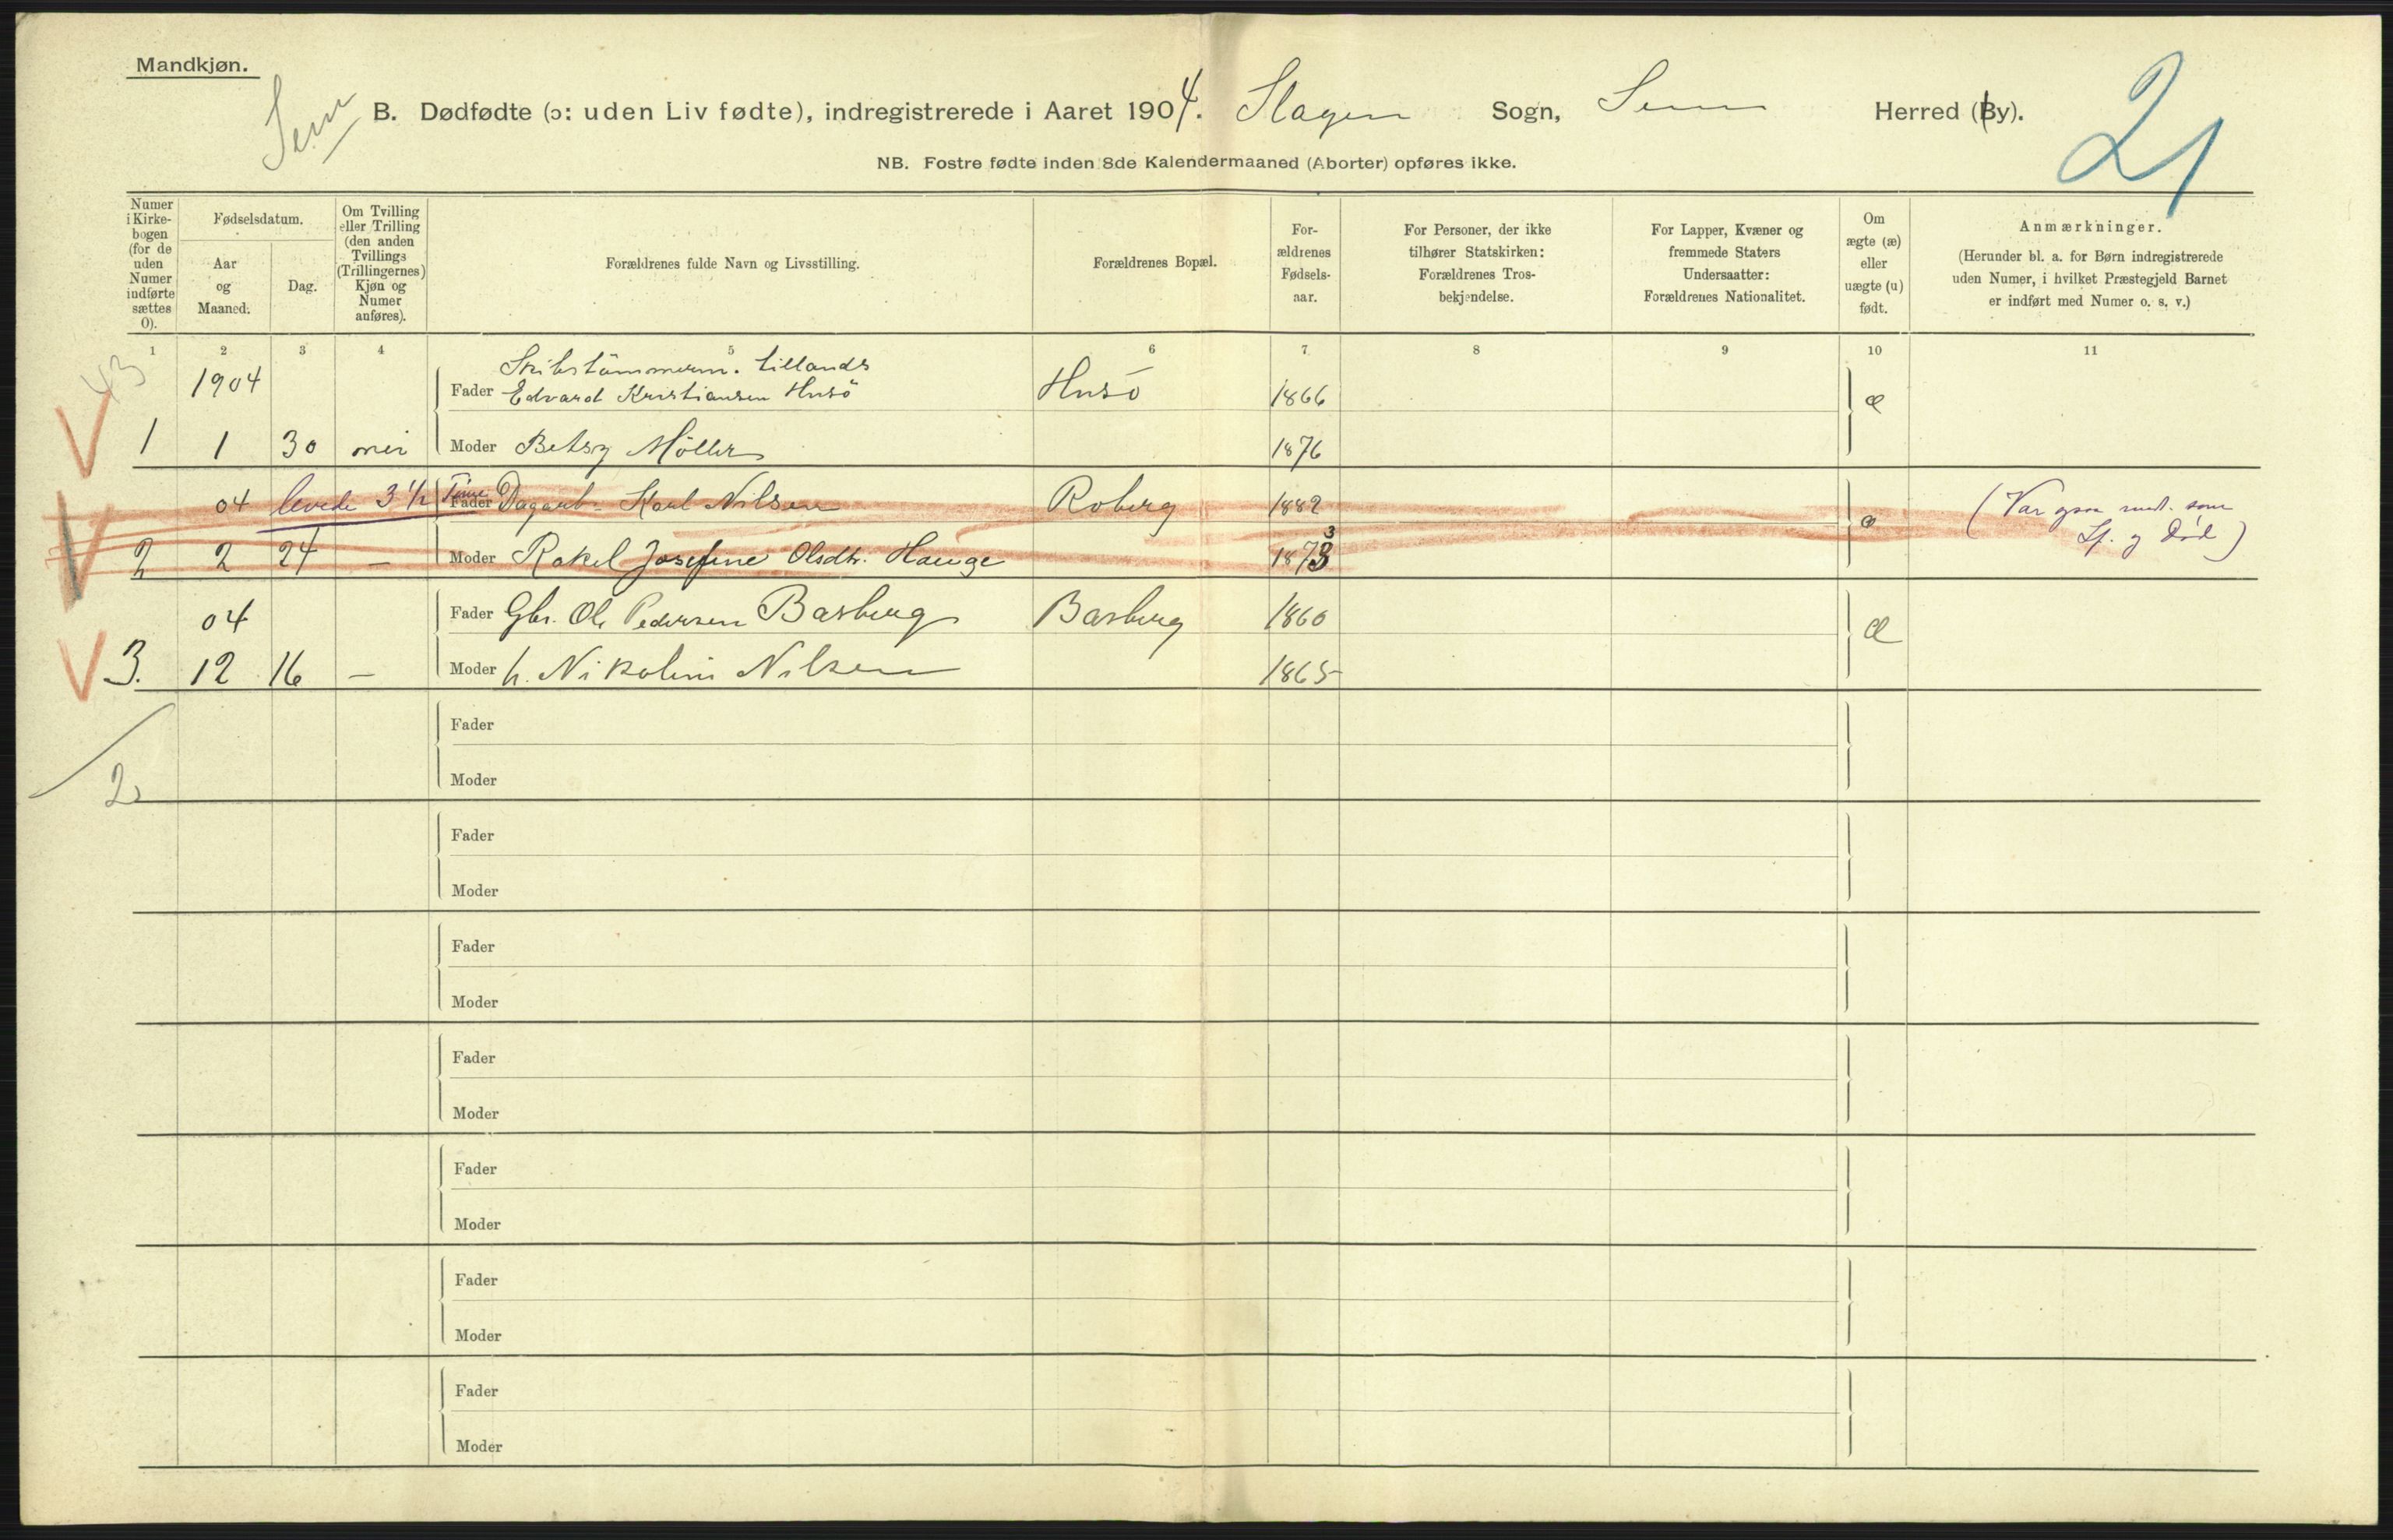 Mandkjøn.
Sem
B. Dødfødte (ɔ: uden Liv fødte), indregistrerede i Aaret 1904. Slagen Sogn, Sem Herred (By).
21
NB. Fostre fødte inden 8de Kalendermaaned (Aborter) opføres ikke.
Numer i Kirke-bogen (for de uden Numer indførte sættes 0).
Fødselsdatum.
Aar og Maaned.
Dag.
Om Tvilling eller Trilling (den anden Tvillings (Trillingernes) Kjøn og Numer anføres).
Forældrenes fulde Navn og Livsstilling.
Forældrenes Bopæl.
For-ældrenes Fødsels-aar.
For Personer, der ikke tilhører Statskirken: Forældrenes Tros-bekjendelse.
For Lapper, Kvæner og fremmede Staters Undersaatter: Forældrenes Nationalitet.
Om ægte (æ) eller uægte (u) født.
Anmærkninger.
(Herunder bl. a. for Børn indregistrerede uden Numer, i hvilket Præstegjeld Barnet er indført med Numer o. s. v.)
1 2 3 4 5 6 7 8 9 10 11
43
Skibstömmerm. tillands
1904 Fader Edvard Kristiansen Husö Husö 1866 æ
1 1 30 nei Moder Betsy Möller 1876
04 levede 3 1/2 Time Fader Dagarb. Karl Nilsen Roberg 1882 æ (Var ogsaa som
2 2 24 — Moder Rakel Josefine Olsdtr. Hauge 1873 3 og Død)
04 Fader Gbr. Ole Pedersen Basberg Basberg 1860 æ
3. 12 16 — Moder h. Nikoline Nilsen 1865
Fader
2
Moder
Fader
Moder
Fader
Moder
Fader
Moder
Fader
Moder
Fader
Moder
Fader
Moder